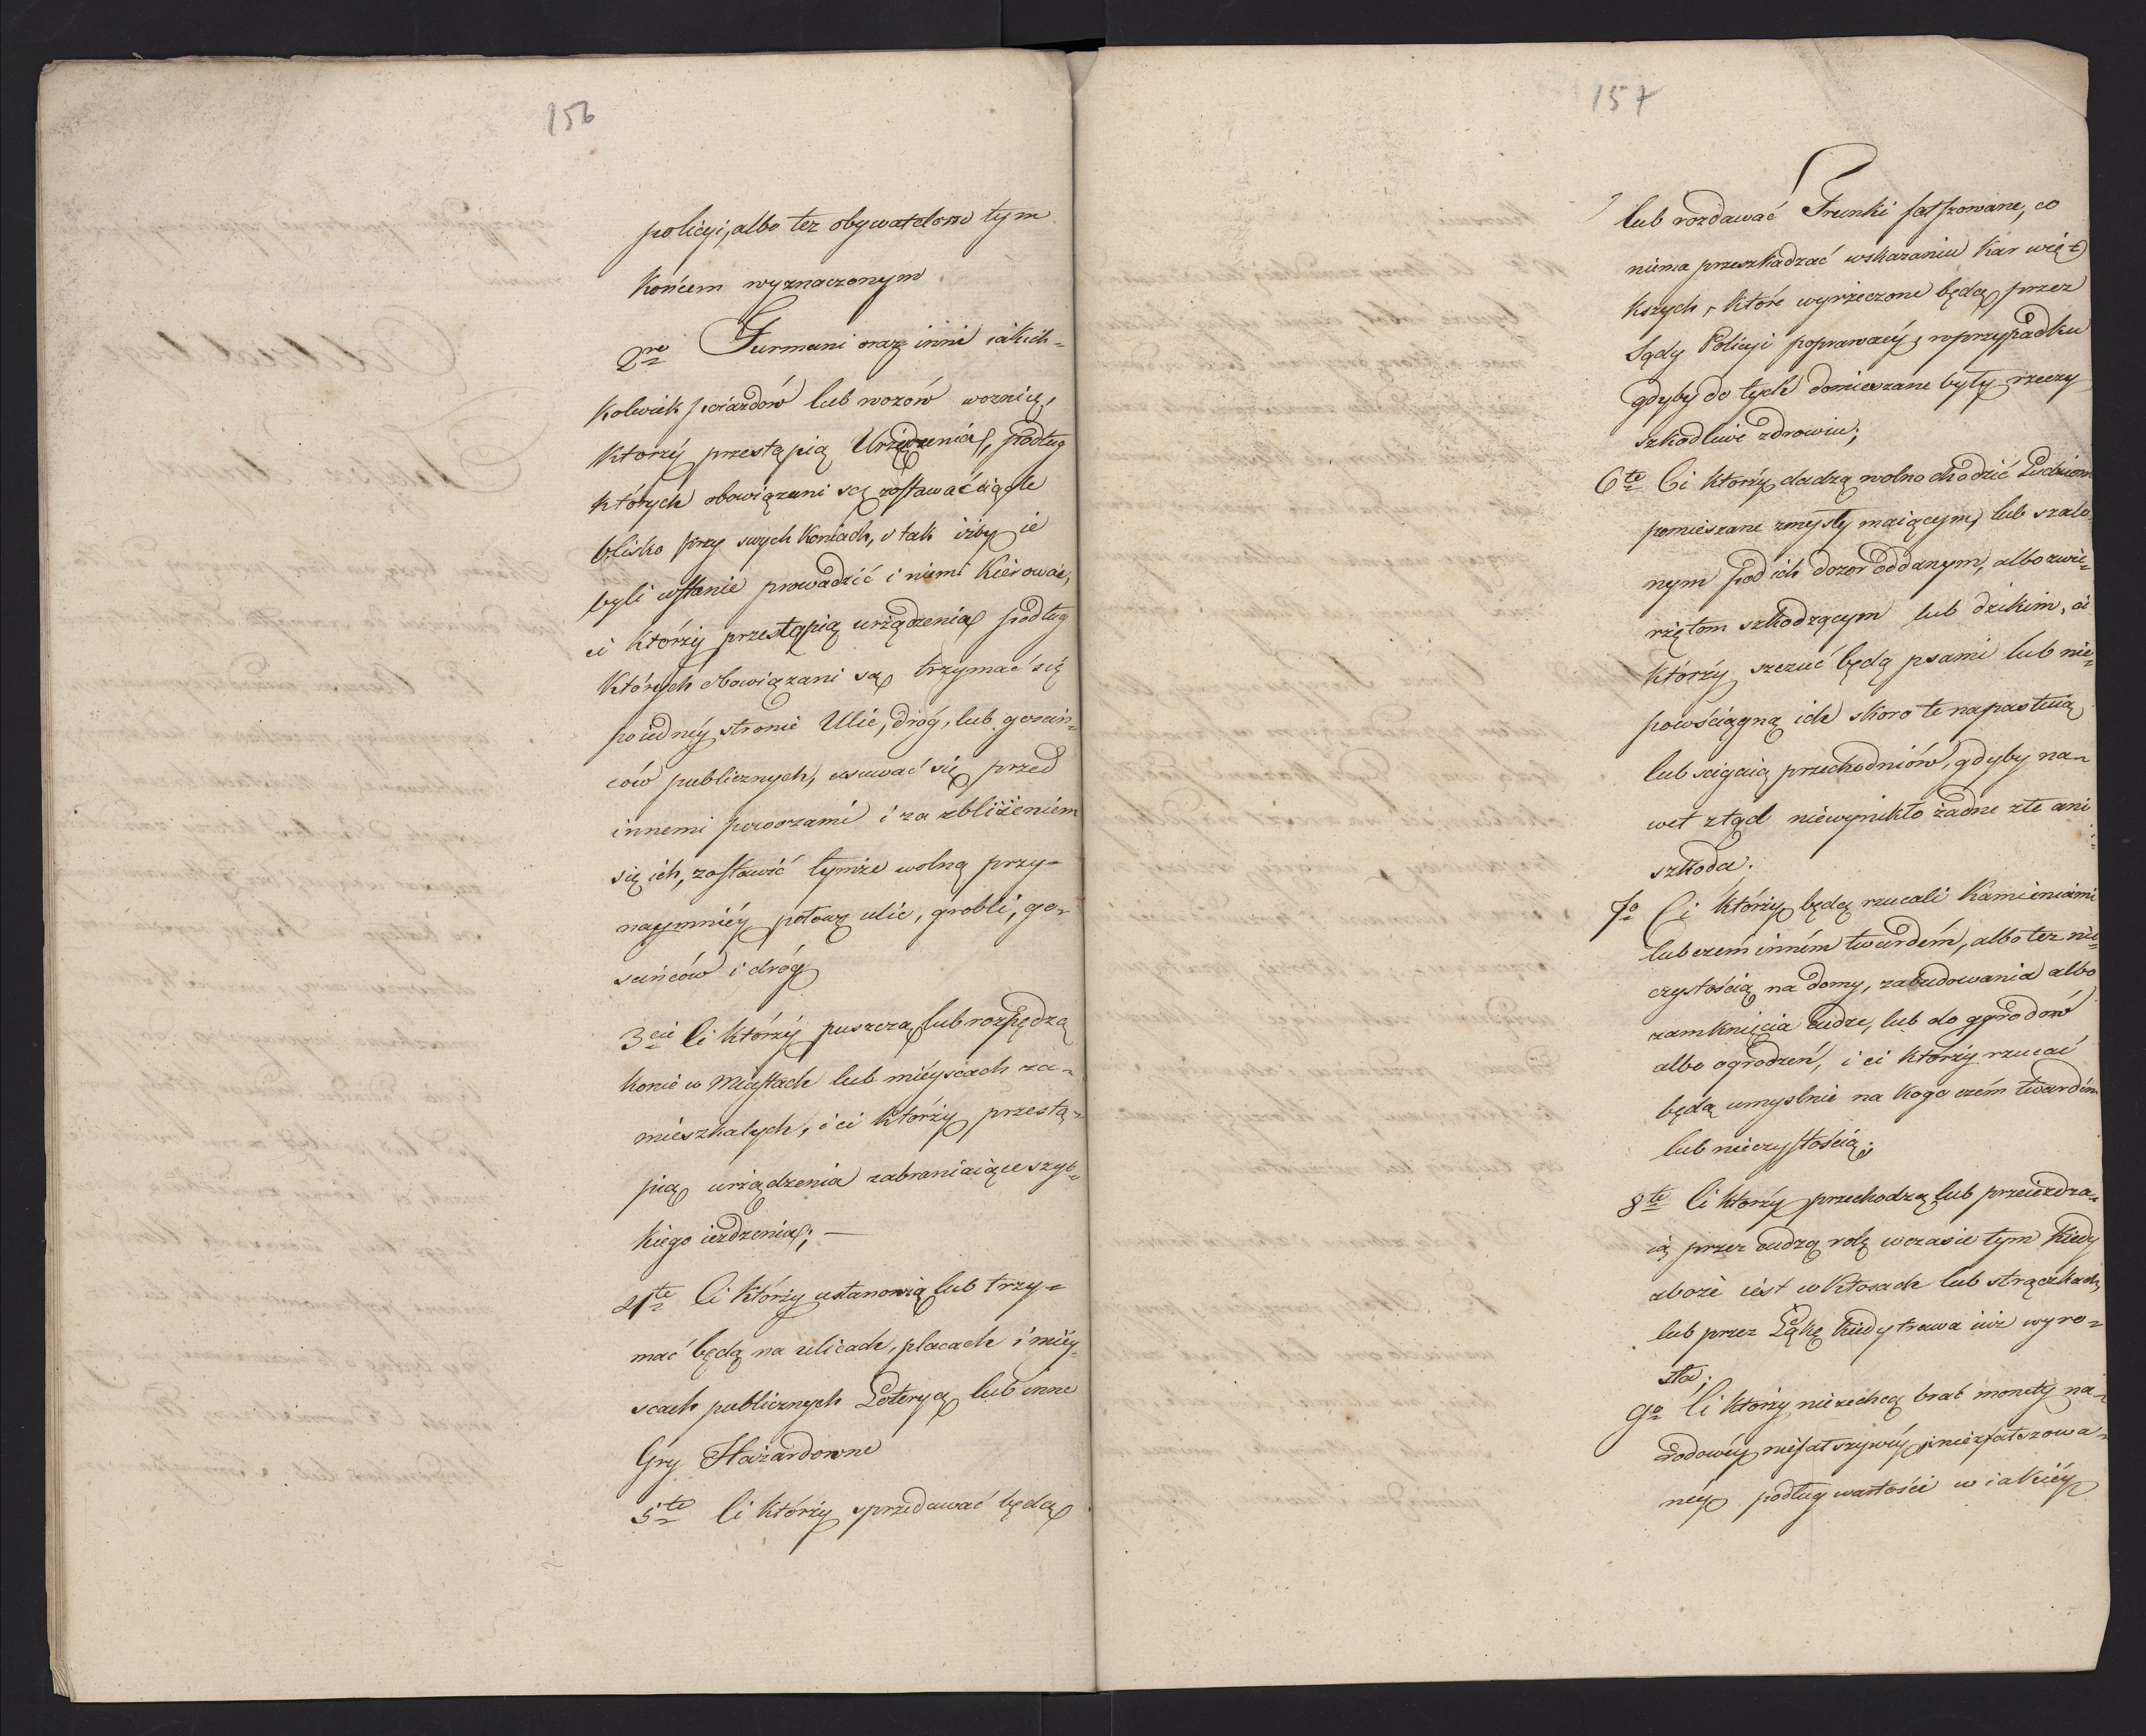 156
policyi, albo tez obywatelowi tym
końcem wyznaczonym
2re Furmani oraz inni iakich-
kolwiek poiazdów lub wozów woznicę,
Którzy przestąpią Urządzenia, podług
których obowiązani są zostawać ciągle
blisko przy swych Koniach, i tak iżby ie
byli wstanie prowadzić i niemi Kierować,
ci Którzy przestąpią urządzenia podług
Których obowiązani są trzymać się
po iedney stronie Ulic, dróg, lub gościń-
ców publicznych, usuwać się przed
innemi powozami i za zbliżeniem
się ich, zostawić tymże wolną przy-
naymniéy połowę ulic, grobli, go-
ścińców i dróg
3cie Ci którzy puszczą lub rozpędzą
konie w Miastach lub mieyscach za-
mieszkałych, i ci którzy przestą-
pią urządzenia zabraniaiące szyb-
kiego ieżdzenia; —
4te Ci którzy ustanowią lub trzy-
mać będą na ulicach, placach i miéy-
scach publicznych Loterye lub inne
Gry Hazardowne
5te Ci którzy sprzedawać będą
157
lub rozdawać Trunki fałszowane, co
niema przeszkadzać wskazaniu Kar więk-
kszych, które wyrzeczone będą przez
Sądy Policyi poprawczéy, w przypadku
gdyby do tych domieszane były rzeczy
szkodliwe zdrowiu;
6te Ci którzy dadzą wolno chodzić Ludziom
pomieszane zmysły maiącym, lub szalo-
nym pod ich dozór oddanym, albo zwie-
rzętom szkodzącym lub dzikim, ci
którzy szczuć będą psami lub nie-
powściągną ich skoro te napastuią
lub scigaią przechodniów, gdyby na-
wet ztąd niewynikło żadne złe ani
szkoda.
7o Ci którzy będą rzucali Kamieniami
lub czem inném twardém, albo tez nie-
czystością na domy, zabudowania albo
zamknięcia cudze, lub do ogrodów
albo ogrodzeń, i ci którzy rzucać
będą umyslnie na kogo czém twardém
lub nieczystością;
8te Ci którzy przechodzą lub przeieżdza-
ią przez cudzą rolę w czasie tym kiedy
zboże iest w Kłosach lub strączkach,
lub przez Łąkę kiedy trawa iuż wyro-
sła;
9o Ci którzy niezechcą brać monety na-
rodowéy niefałszywéy i niezfałszowa-
néy podług wartości w iakiéy